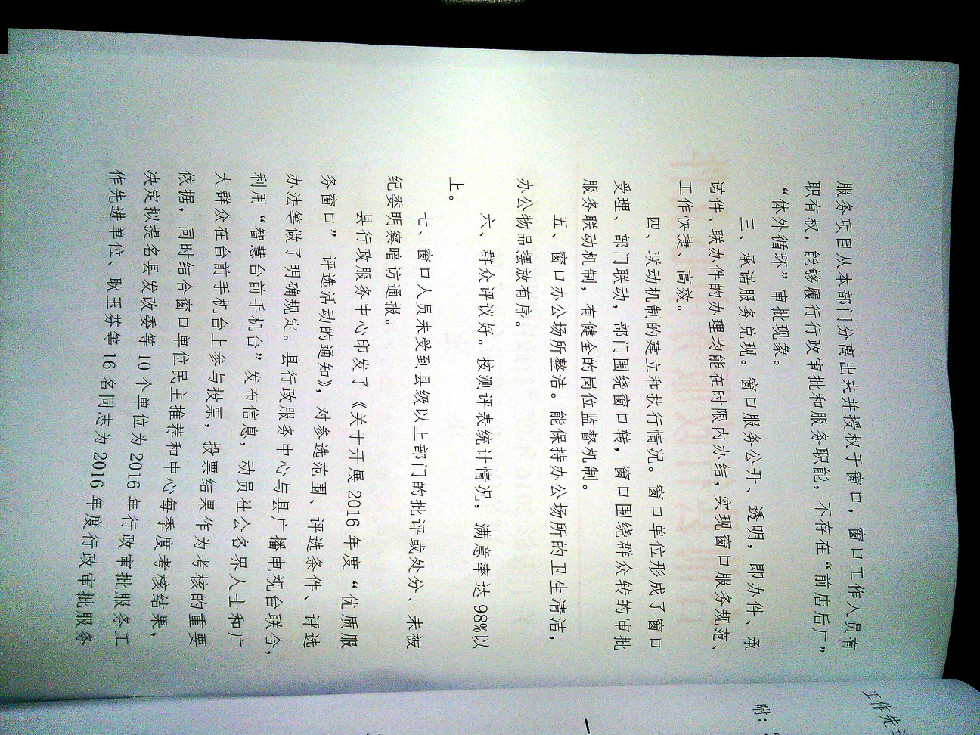 服务项目从本部门分离出来并授权于窗口，窗口工作人员有
职有权，能够履行行政审批和服务职能，不存在“前店后厂”
“体外循环”审批现象。
三、承诺服务兑现。窗口服务公开、透明，即办件、承
诺件、联办件的办理均能在时限内办结，实现窗口服务规范、
工作快捷、高效。
四、联动机制的建立和执行情况。窗口单位形成了窗口
受理、部门联动，部门围绕窗口转，窗口围绕群众转的审批
服务联动机制，有健全的岗位监督机制。
五、窗口办公场所整洁。能保持办公场所的卫生清洁，
办公物品摆放有序。
六、群众评议好。按测评表统计情况，满意率达 98%以
上。
七、窗口人员未受到县级以上部门的批评或处分、未被
纪委明察暗访通报。
县行政服务中心印发了《关于开展 2016 年度“优质服
务窗口”评选活动的通知》，对参选范围、评选条件、评选
办法等做了明确规定。县行政服务中心与县广播电视台联合，
利用“智慧台前手机台”发布信息，动员社会各界人士和广
大群众在台前手机台上参与投票，投票结果作为考核的重要
依据，同时结合窗口单位民主推荐和中心每季度考核结果，
决定拟提名县发改委等 10 个单位为 2016 年行政审批服务工
作先进单位、耿玉芬等 16 名同志为 2016 年度行政审批服务
工作先
附：